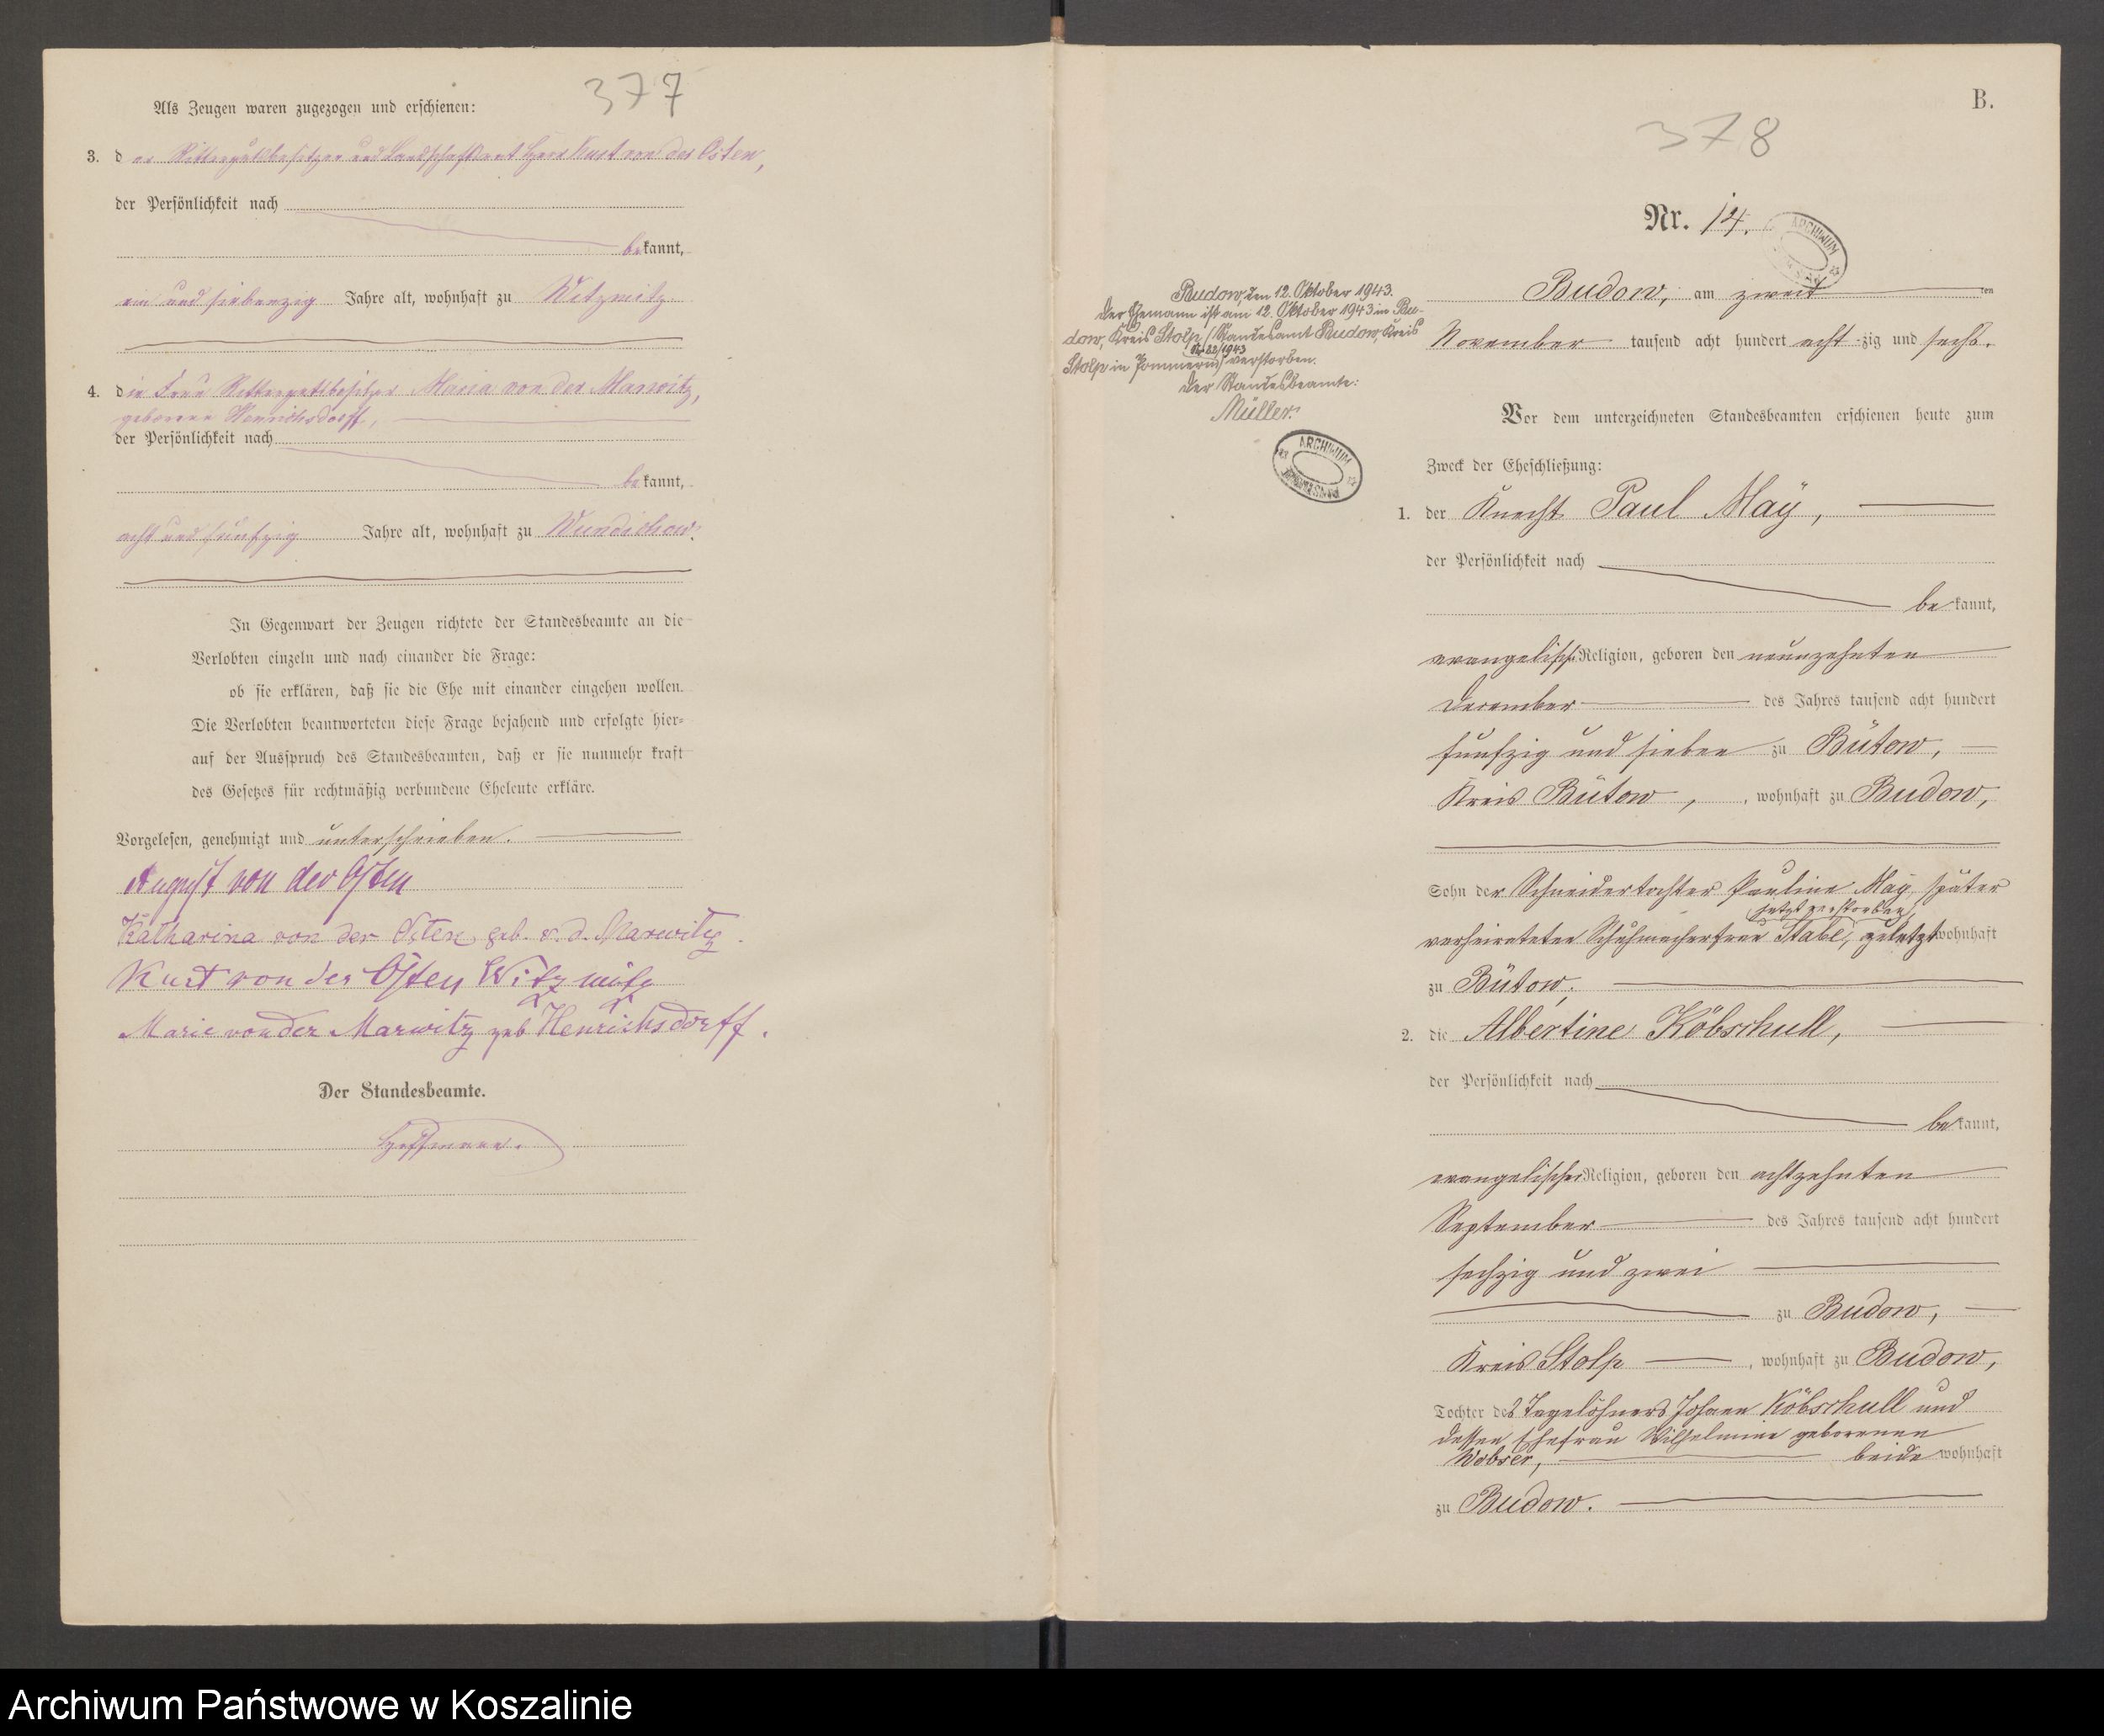 377
Als Zeugen waren zugezogen und erschienen:
3. der Rittergutsbesitzer und Landschaftsrat Herr Kurt von der Osten,
der Persönlichkeit nach
bekannt,
ein und siebenzig Jahre alt, wohnhaft zu Witzmitz
4. die Frau Rittergutsbesitzer Maria von der Marwitz,
geborene Hennichsdorff,
der Persönlichkeit nach
bekannt,
acht und fünfzig Jahre alt, wohnhaft zu Wundichow.
In Gegenwart der Zeugen richtete der Standesbeamte an die
Verlobten einzeln und nach einander die Frage:
ob sie erklären, daß sie die Ehe mit einander eingehen wollen.
Die Verlobten beantworteten diese Frage bejahend und erfolgte hier-
auf der Ausspruch des Standesbeamten, daß er sie nunmehr kraft
des Gesetzes für rechtmäßig verbundene Eheleute erkläre.
Vorgelesen, genehmigt und unterschrieben.
August von der Osten
Katharina von der Osten geb. v. d. Marwitz.
Kurt von der Osten Witzmitz
Marie von der Marwitz geb Henrichsdorff.
Der Standesbeamte.
B.
378
Nr. 14.
ARCHIWUM
Budow, am zweit ten
November tausend acht hundert acht-zig und sechs.
Budow, den 12. Oktober 1943.
Der Ehemann ist am 12. Oktober 1943 in Bu-
dow, Kreis Stolp (Standesamt Budow, Kreis
Stolp in Pommern Nr 22/1943) verstorben.
Der Standesbeamte:
Müller.
ARCHIWUM
Vor dem unterzeichneten Standesbeamten erschienen heute zum
Zweck der Eheschließung:
1. der Knecht Paul Maÿ,
der Persönlichkeit nach
bekannt,
evangelischer Religion, geboren den neunzehnten
Dezember des Jahres tausend acht hundert
fünfzig und sieben zu Bütow,
Kreis Bütow, wohnhaft zu Budow,
Sohn der Schneidertochter Pauline Maÿ, später
jetzt verstorben,
verheirateten Schuhmacherfrau Stabe, zuletzt wohnhaft
zu Bütow.
2. die Albertine Köbschull,
der Persönlichkeit nach
bekannt,
evangelischer Religion, geboren den achtzehnten
September des Jahres tausend acht hundert
sechzig und zwei
zu Budow,
Kreis Stolp, wohnhaft zu Budow,
Tochter des Tagelöhners Johann Köbschull und
dessen Ehefrau Wilhelmine geborenen
Wobser, beide wohnhaft
zu Budow.
Archiwum Państwowe w Koszalinie